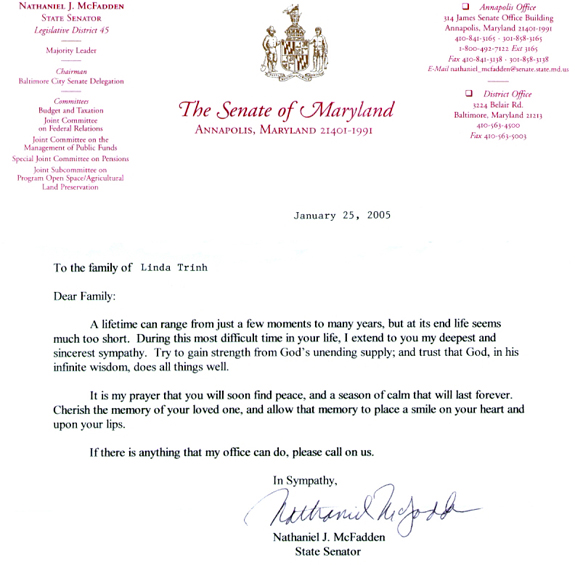 NATHANIEL J. MCFADDEN
STATE SENATOR
Legislative District 45
Majority Leader
Chairman
Baltimore City Senate Delegation
Committees
Budget and Taxation
Joint Committee
on Federal Relations
Joint Committee on the
Management of Public Funds
Special Joint Committee on Pensions
Joint Subcommittee on
Program Open Space/Agricultural
Land Preservation
The Senate of Maryland
ANNAPOLIS, MARYLAND 21401-1991
Annapolis Office
314 James Senate Office Building
Annapolis, Maryland 21401-1991
410-841-3165 · 301-858-3165
1-800-492-7122 Ext 3165
Fax 410-841-3138 · 301-858-3138
E-Mail nathaniel_mcfadden@senate.state.md.us
District Office
3224 Belair Rd.
Baltimore, Maryland 21213
410-563-4500
Fax 410-563-5003
January 25, 2005
To the family of Linda Trinh
Dear Family:
A lifetime can range from just a few moments to many years, but at its end life seems
much too short. During this most difficult time in your life, I extend to you my deepest and
sincerest sympathy. Try to gain strength from God's unending supply; and trust that God, in his
infinite wisdom, does all things well.
It is my prayer that you will soon find peace, and a season of calm that will last forever.
Cherish the memory of your loved one, and allow that memory to place a smile on your heart and
upon your lips.
If there is anything that my office can do, please call on us.
In Sympathy,
Nathaniel McFadden
Nathaniel J. McFadden
State Senator